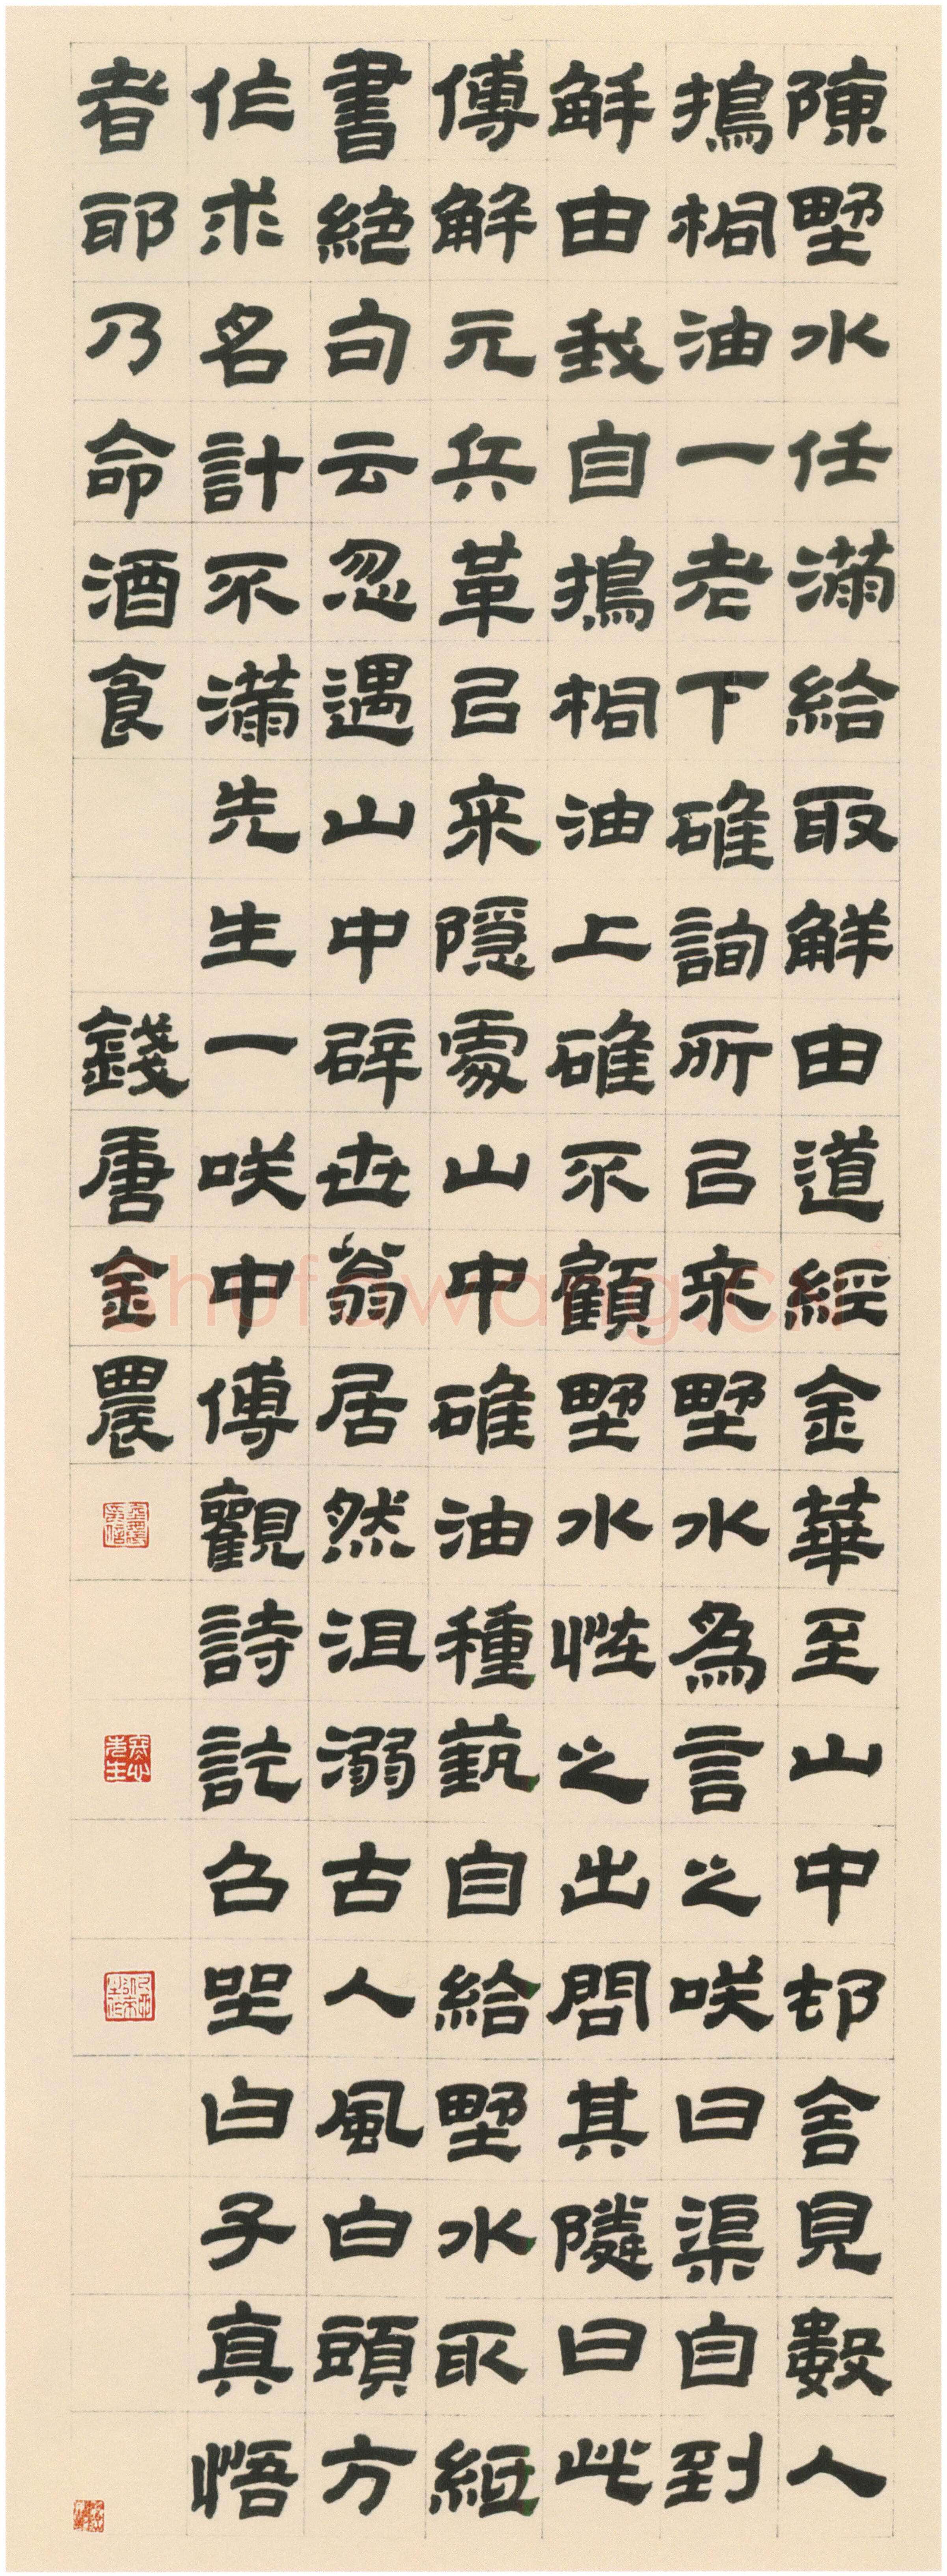 陳墅水任滿給取解由道經金華至山中邨舍見數人
搗桐油一老下碓詢所以來墅水為言之咲曰渠自到
解由我自搗桐油上碓不顧墅水怪之出問其隣曰此
傅解元兵革以來隱處山中碓油種蓺自給墅水取紙
書絕句云忽遇山中辟世翁居然沮溺古人風白頭方
作求名計不滿先生一咲中傅觀詩訖召坐白子真悟
者耶乃命酒食
錢唐金農
冬心先生
shufawang.cn